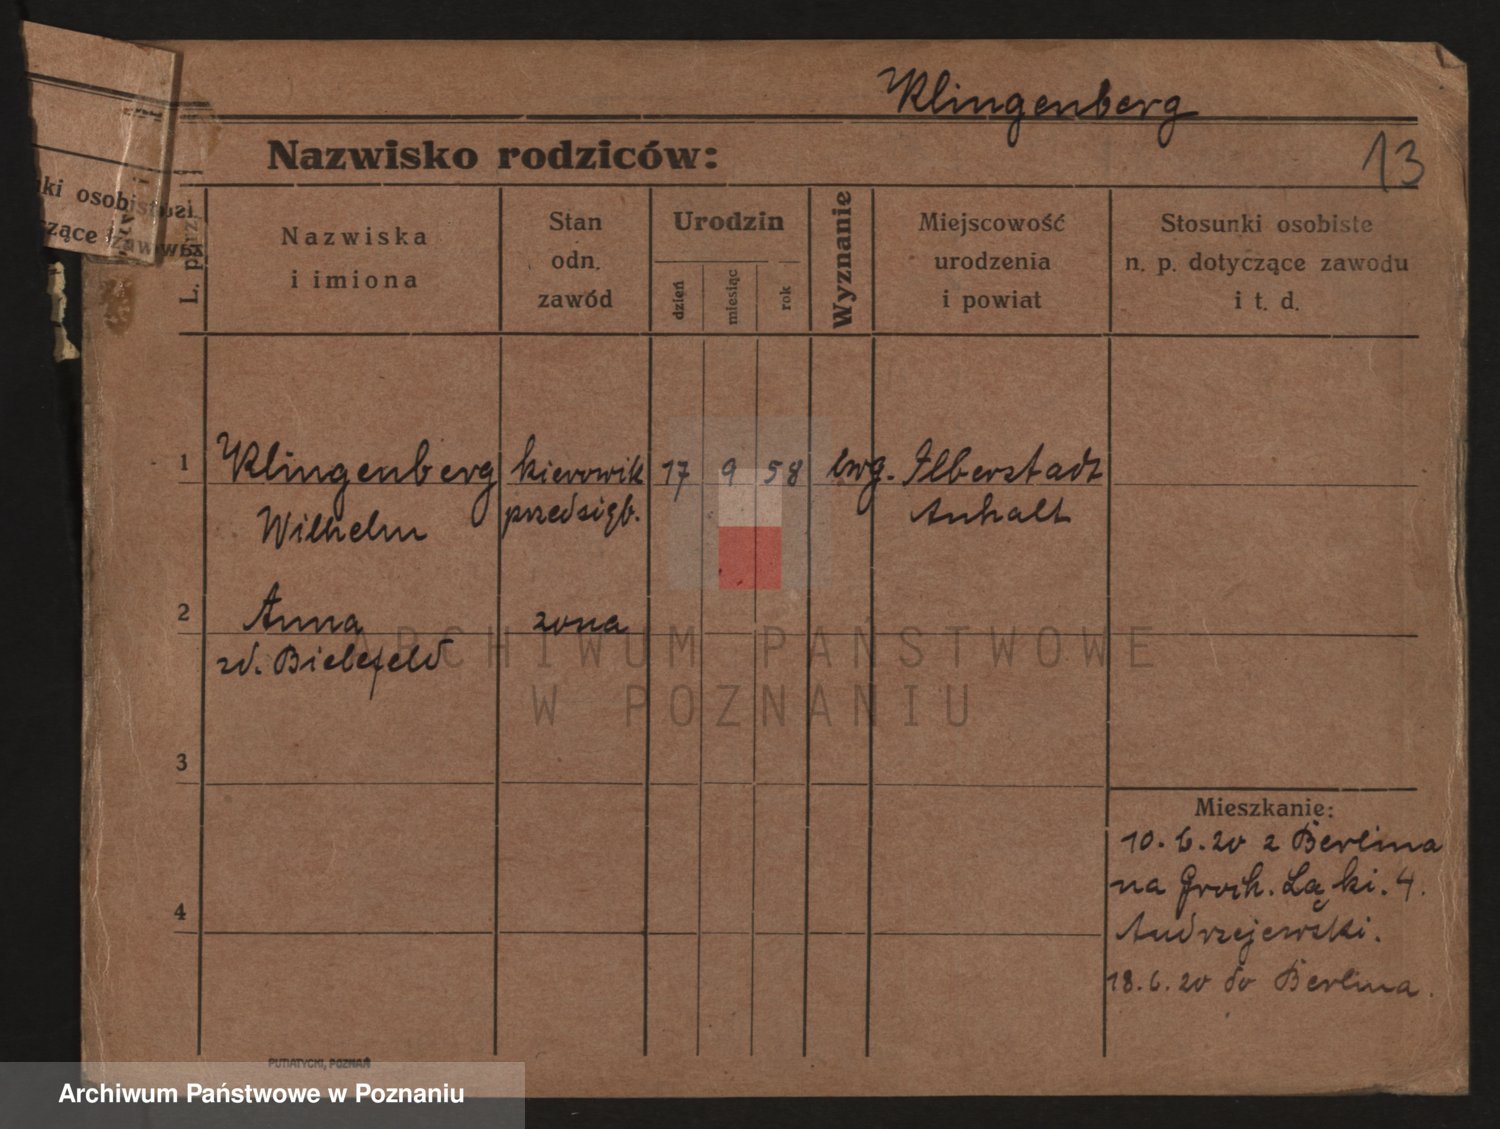 Klingenberg
13
Nazwisko rodziców:
L. prz.
Nazwiska
i imiona
Stan
odn.
zawód
Urodzin
dzień
miesiąc
rok
Wyznanie
Miejscowość
urodzenia
i powiat
Stosunki osobiste
n. p. dotyczące zawodu
i t. d.
ki osobis
zące zawo
1 Klingenberg kierowik 17 9 58 ewg. Ilberstadt
Wilhelm przedsięb. Anhalt
2 Anna zona
zd. Bielefeld
3
4
Mieszkanie:
10. 6. 20 z Berlina
na Groch. Łąki. 4.
Andrzejewski.
18. 6. 20 do Berlina.
PUTIATYCKI, POZNAŃ
ARCHIWUM PAŃSTWOWE
W POZNANIU
Archiwum Państwowe w Poznaniu